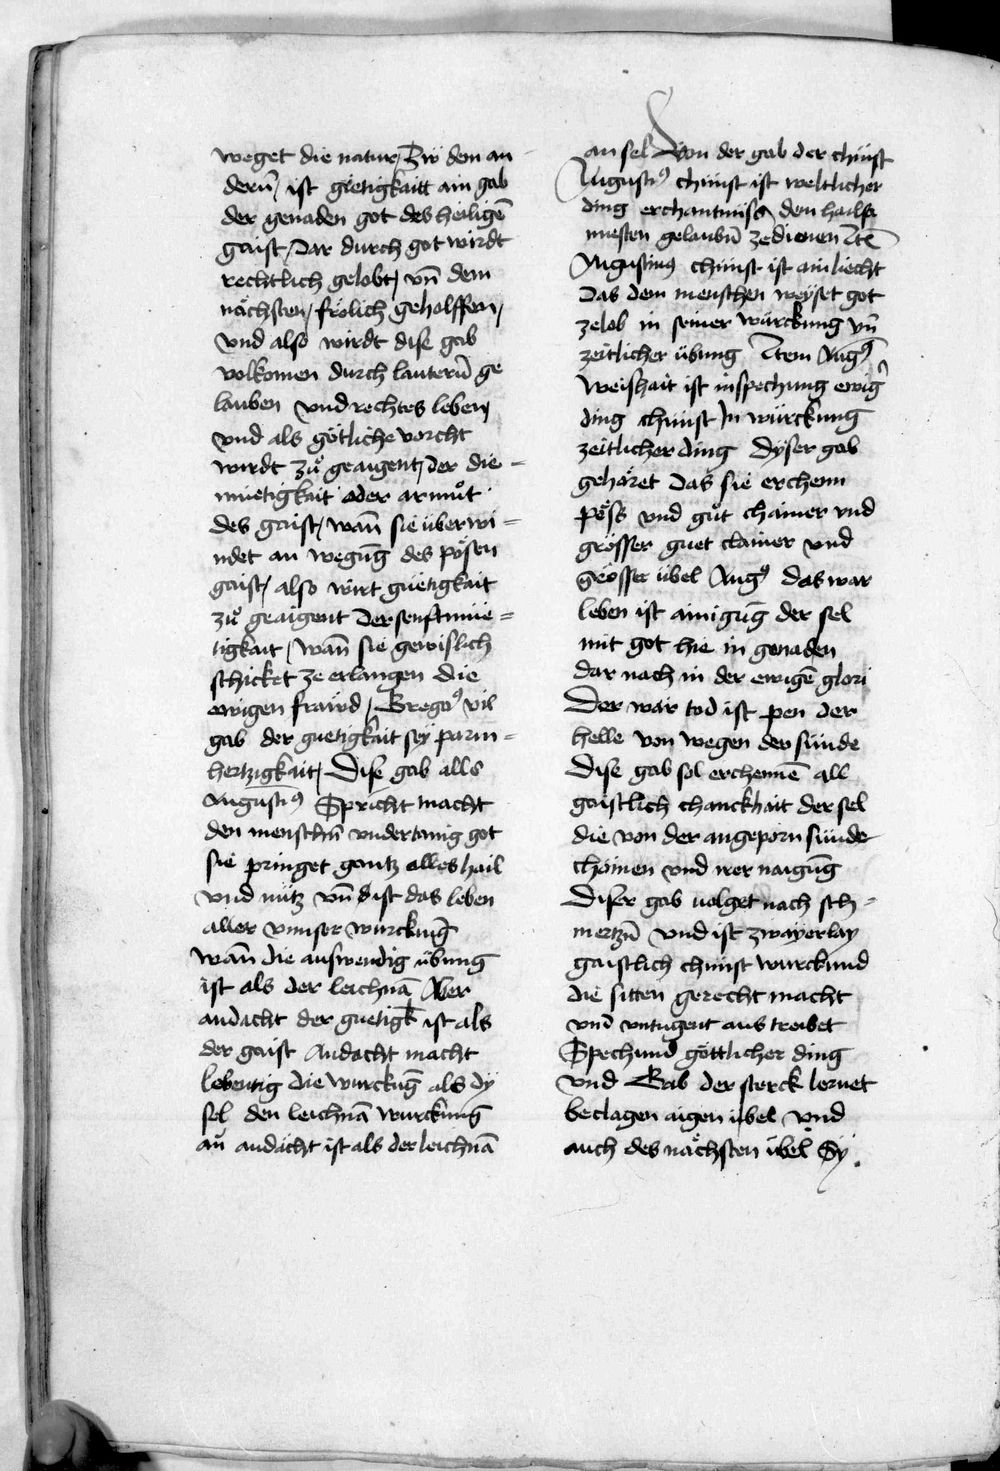 weget die natur / Zw dem an
derñ / ist gietigkaitt ain gab
der genaden got des heiligē
gaist / Dar durch got wirdt
rechtlich gelobt / vn̄ dem
nächsten / frölich geholffen /
vnd also wirdt dise gab
volkomen durch lauterñ ge
lauben vnd rechtes leben /
vnd als götliche vorcht
wirdt zů geaigent / der die =
müetigkait oder armůt
des gaist / wan̄ sie überwi =
ndet an wegūg des pösen
gaist / also wirt güetigkait
zů geaigent Der senftmüe =
tigkait / wan̄ sie gewislich
schicket ze erlangen die
ewigen fraẅd / Gregoꝰ vil
gab der guetigkait sey parm =
hertzigkait / Dise gab alls
Augustiꝰ Spricht macht
den menschñ vndertanig got
sie pringet gantz alles hail
vnd nütz vn̄ dist das leben
aller vnnser würckūg
wan̄ die auswendig übung
ist als der leichnā Aber
andacht der guetigk̄ ist als
der gaist Andacht macht
lebentig die wurckūg als dy
sel den leichnā wurckūng
an̄ andacht ist als der leichnā
an sel Von der gab der chünst
Augustiꝰ chünst ist weltlicher
ding erchantnüss dem hailsa
miesten gelaubñ zedienen Itē
Augustinꝰ chünst ist ain liecht
Das dem menschen weyset got
zelob in seiner würckung vn̄
zeitlicher übung Item Augꝰ
Weishait ist inspechung ewigꝰ
ding chünst In würckung
zeitlicher ding Dyser gab
gehäret Das sie erchenn
pöss vnd gůt chainer vnd
grösser guet clainer vnd
Grösser übel Augꝰ das war
leben ist ainigūg der sel
mit got hie in genaden
dar nach in der ewigē glori
Der war tod ist pen der
helle von wegen der sünde
Dise gab sol erchennē all
gaistlich chranckhait der sel
die von der angeporn sünde
chämen vnd irer naigūg
Diser gab uolget nach sch =
mertzñ vnd ist zwayerlay
gaistlich chünst wurckund
die sitten gerecht macht
vnd vntugent aus treibet
Spechund göttlicher ding
vnd Gab der sterck lernet
beclagen aigen übel vnd
auch des nächsten übel Dy